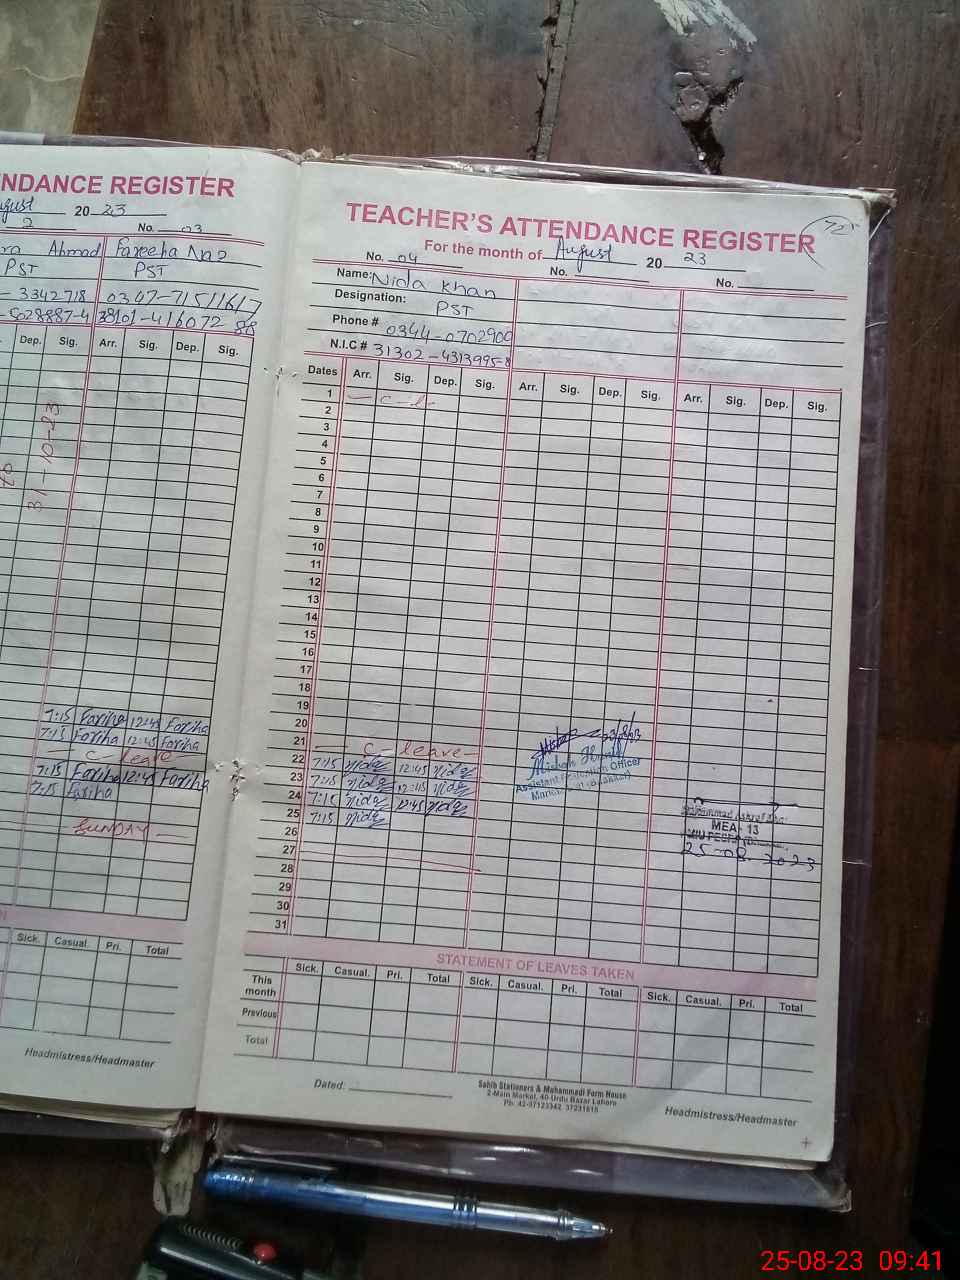 NDANCE REGISTER
August 2023
2 No. 03
Ahmad Fareeha Naz
PST PST
3342718 0347-7151161/7
Dep. Sig. Arr. Sig. Dep. Sig.
31-10-23
7:15 Fariha 12:45 Fariha
7:15 Fariha 12:45 Fariha
C - leave
7:15 Fariha 12:45 Fariha
7:15 Fariha
SUNDAY
Sick. Casual. Pri. Total
Headmistress/Headmaster
TEACHER'S ATTENDANCE REGISTER
For the month of August 2023
No. 04 No. No.
Name: Nida Khan
Designation: PST
Phone # 0344-0702900
N.I.C # 31302-4313995-8
Dates Arr. Sig. Dep. Sig. Arr. Sig. Dep. Sig. Arr. Sig. Dep. Sig.
1 — C - l -
2
3
4
5
6
7
8
9
10
11
12
13
14
15
16
17
18
19
20
21 — C - leave -
22 7:15 Nida 12:45 Nida
23 7:15 Nida 12:45 Nida
24 7:15 Nida 12:45 Nida
25 7:15 Nida
26
27
28
29
30
31
23/8/23
Assistant Education Officer
MEA - 13
25-08-2023
STATEMENT OF LEAVES TAKEN
Sick. Casual. Pri. Total Sick. Casual. Pri. Total Sick. Casual. Pri. Total
This month
Previous
Total
Dated:
Sahib Stationers & Muhammadi Form House
2-Main Market, 40-Urdu Bazar Lahore
Ph: 42-37123342 37231815
Headmistress/Headmaster
25-08-23 09:41